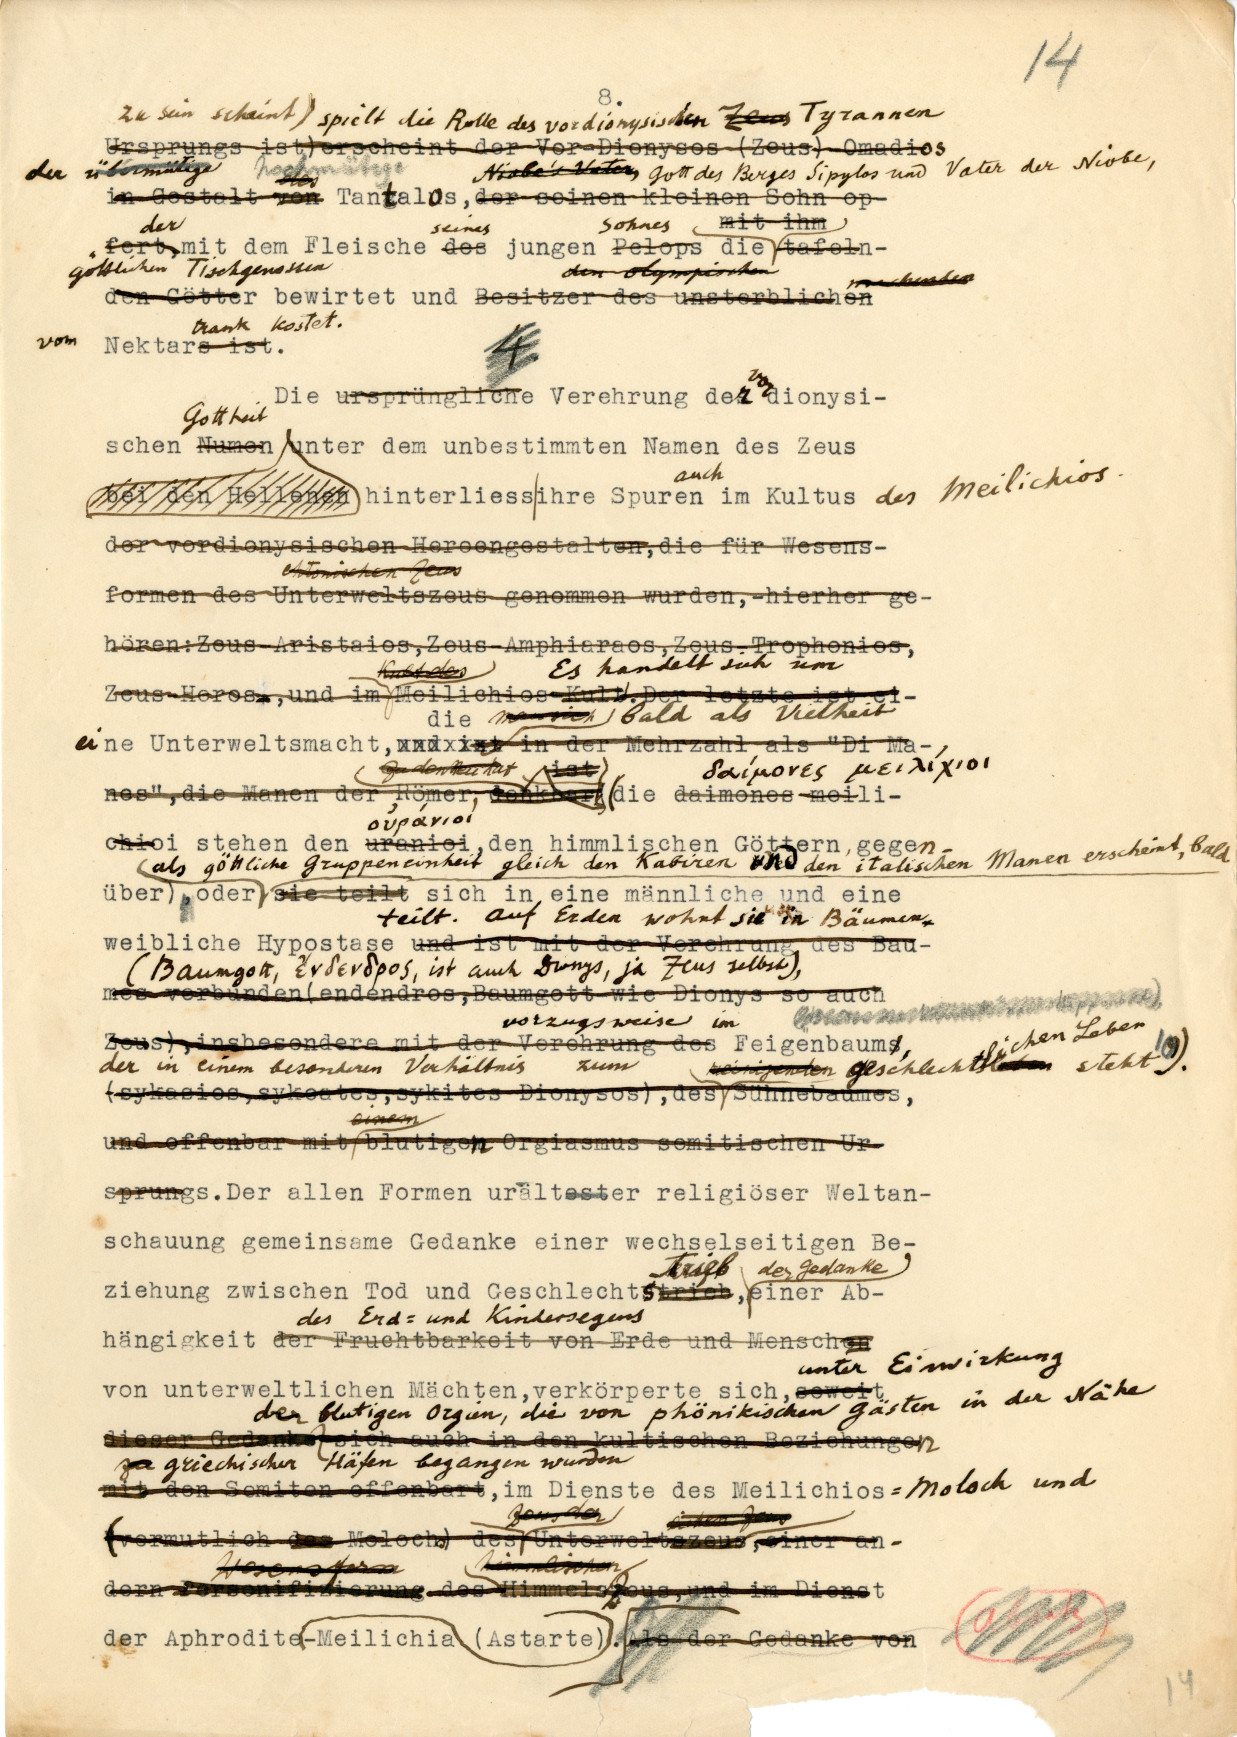 14
8.
zu sein scheint) spielt die Rolle des vordionysischen Zeus Tyrannen
Ursprungs ist) erscheint der Vor-Dionysos (Zeus) Omadios
der übermütige hochmütige des Niobe's Vater, Gott des Berges Sipylos und Vater der Niobe,
in Gestalt von Tantalos, der seinen kleinen Sohn op-
der seines Sohnes mit ihm
fert, mit dem Fleische des jungen Pelops die tafeln-
göttlichen Tischgenossen den olympischen
den Götter bewirtet und Besitzer des unsterblichen
trank kostet.
vom Nektars ist.
4.
Die ursprüngliche Verehrung der vordionysi-
Gottheit
schen Numen unter dem unbestimmten Namen des Zeus
auch
bei den Hellenen hinterliess ihre Spuren im Kultus des Meilichios.
der vordionysischen Heroengestalten, die für Wesens-
chtonischen Zeus
formen des Unterweltszeus genommen wurden,-hierher ge-
hören: Zeus-Aristaios, Zeus-Amphiaraos, Zeus-Trophonios,
Kult des Es handelt sich um
Zeus-Heros-, und im Meilichios-Kult. Der letzte ist ei-
die man sich bald als Vielheit
eine Unterweltsmacht, und ist in der Mehrzahl als "Di Ma-
zu denken hat ist δαίμονες μειλίχιοι
nes", die Manen der Römer, denkbar (die daimones meili-
οὐράνιοι
chioi stehen den uranioi, den himmlischen Göttern, gegen-
als göttliche Gruppeneinheit gleich den Kabiren und den italischen Manen erscheint, bald
über), oder sie teilt sich in eine männliche und eine
teilt. Auf Erden wohnt sie in Bäumen
weibliche Hypostase und ist mit der Verehrung des Bau-
(Baumgott, ἔνδενδρος, ist auch Dionys, ja Zeus selbst),
mes verbunden (endendros, Baumgott wie Dionys so auch
vorzugsweise im
Zeus), insbesondere mit der Verehrung des Feigenbaums,
der in einem besonderen Verhältnis zum reinigenden geschlechtslichen Leben steht).
(sykasios, sykeates, sykites Dionysos), des Sühnebaumes,
einem
und offenbar mit blutigen Orgiasmus semitischen Ur-
sprungs. Der allen Formen urältester religiöser Weltan-
schauung gemeinsame Gedanke einer wechselseitigen Be-
trieb der Gedanke
ziehung zwischen Tod und Geschlechtstrieb, einer Ab-
des Erd= und Kindersegens
hängigkeit der Fruchtbarkeit von Erde und Menschen
unter Einwirkung
von unterweltlichen Mächten, verkörperte sich, soweit
der blutigen Orgien, die von phönikischen Gästen in der Nähe
dieser Gedanke sich auch in den kultischen Beziehungen
za griechischer Häfen begangen wurden
mit den Semiten offenbart, im Dienste des Meilichios = Moloch und
Zeus der
(vermutlich des Moloch) des Unterweltszeus, einer an-
Wesensform himmlischen
dern Personifizierung des Himmelszeus, und im Dienst
der Aphrodite-Meilichia (Astarte). Als der Gedanke von
14